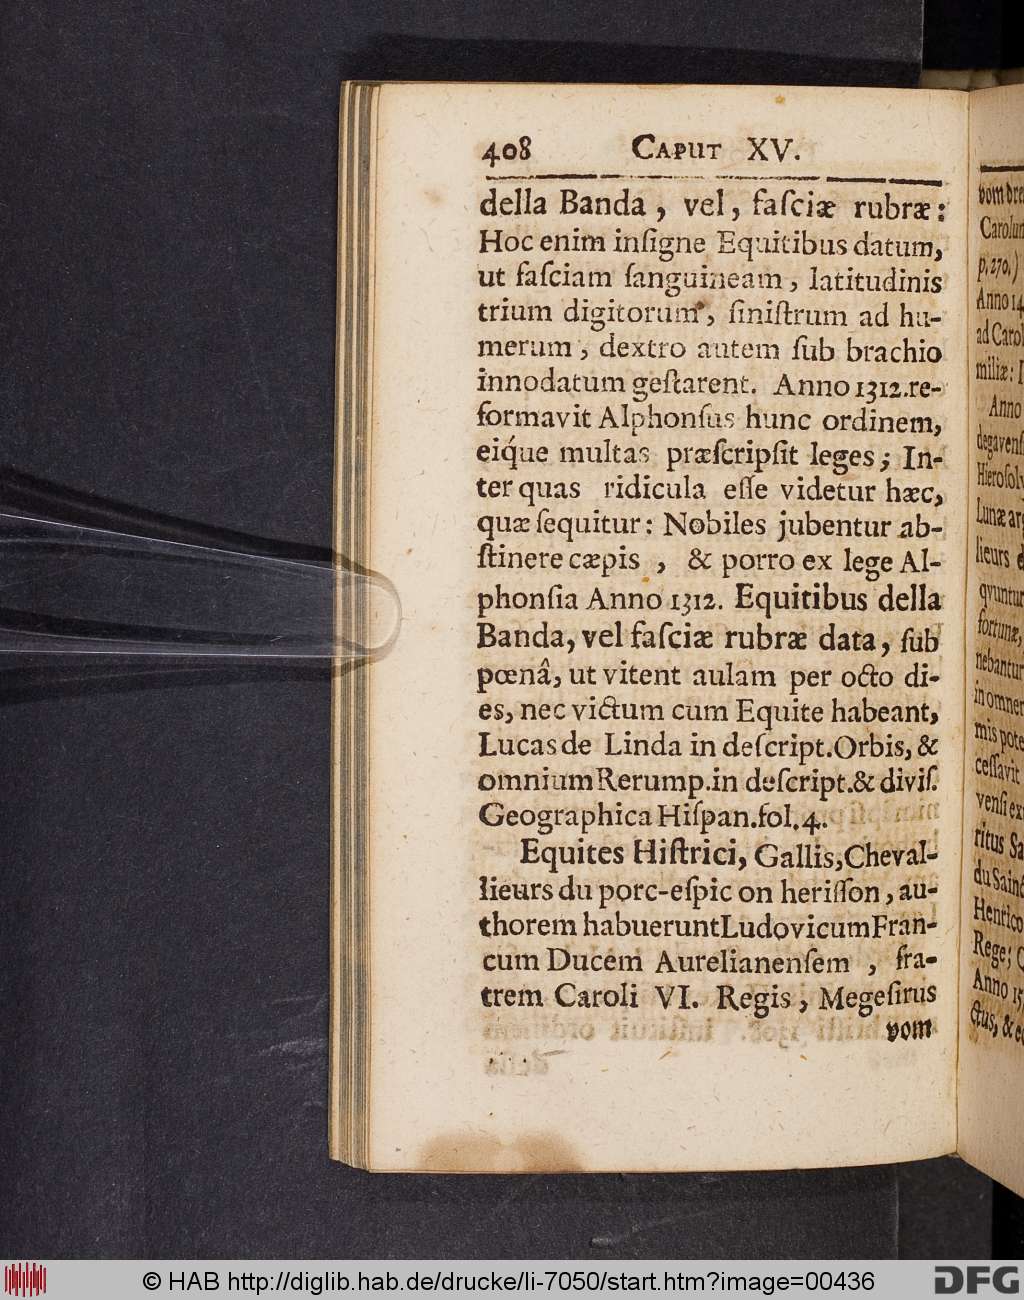 408 CAPUT XV.
della Banda, vel, faſciæ rubræ:
Hoc enim inſigne Equitibus datum,
ut faſciam ſanguineam, latitudinis
trium digitorum, ſiniſtrum ad hu-
merum, dextro autem ſub brachio
innodatum geſtarent. Anno 1312.re-
formavit Alphonſus hunc ordinem,
eiq́ue multas præſcripſit leges; In-
ter quas ridicula eſſe videtur hæc,
quæ ſequitur: Nobiles jubentur ab-
ſtinere cæpis, & porro ex lege Al-
phonſia Anno 1312. Equitibus della
Banda, vel faſciæ rubræ data, ſub
pœnâ, ut vitent aulam per octo di-
es, nec victum cum Equite habeant,
Lucas de Linda in deſcript.Orbis, &
omnium Rerump.in deſcript.& diviſ.
Geographica Hiſpan.fol.4.
Equites Hiſtrici, Gallis,Cheval-
lieurs du porc-eſpic on heriſſon, au-
thorem habuerunt Ludovicum Fran-
cum Ducem Aurelianenſem, fra-
trem Caroli VI. Regis, Megeſirus
vom
vom
p.270.)
Anno
miliæ:
Anno
Lunæ
lieurs
fortunæ,
nebantur
ceſſavit
ritus
Rege;
Anno
© HAB http://diglib.hab.de/drucke/li-7050/start.htm?image=00436
DFG